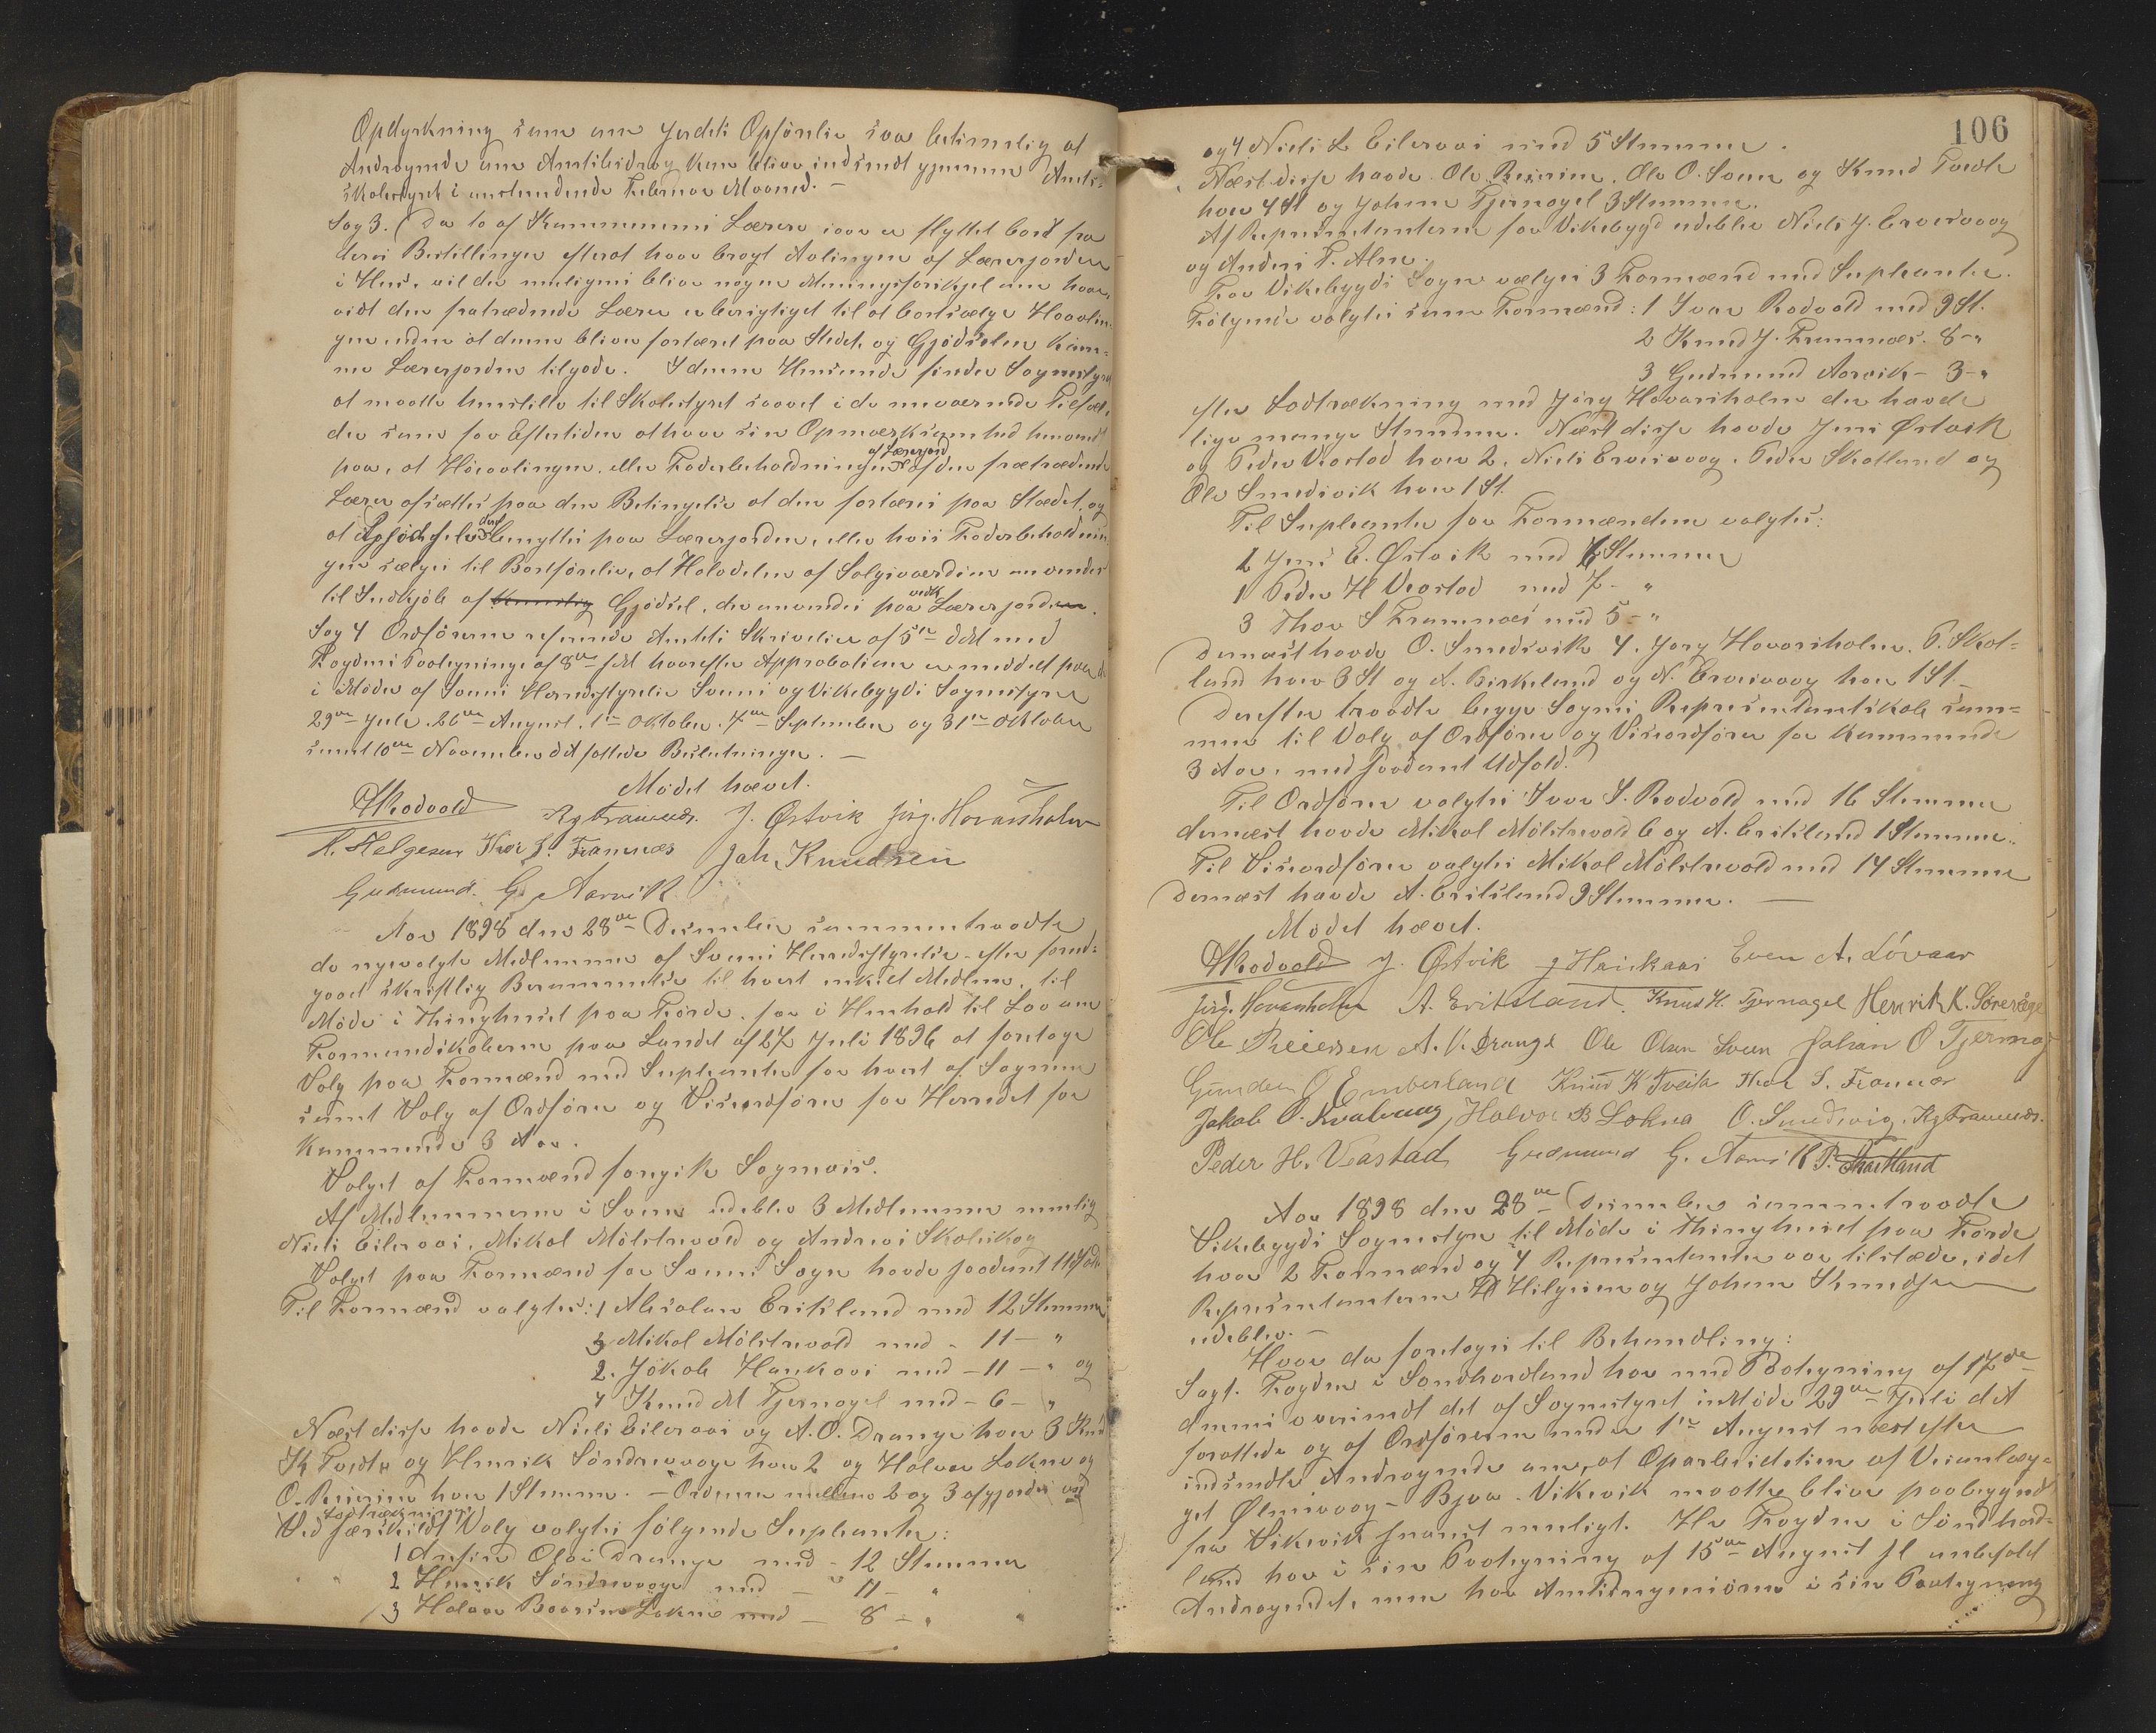 Opdyrkning samt om Jordets Opførelse saa betimelig at
Andragende om Amtsbidrag kan blive indsendt gjennem Amts-
skolestyret i anstundende Februar Maaned. –
Sag 3. Da to af Kommunens Lærere iaar er flyttet bort fra
deres Bestillinger efterat have bragt Avlingen af Lærerjorden
i Hus, vil der muligens blive nogen Meningsforskjel om hvor-
vidt den fratrædende Lærer er berigtiget til at bortsælge Høavlin-
gen uden at denne bliver fortæret paa Stedet og Gjødselen kom-
me Lærerjorden tilgode. I denne Henseende finder Sognestyret
at maatte henstille til Skolestyret saavel i de nuværende Tilfæl-
de som for Eftertiden at have sin Opmærksomhed henvendt
paa, at Høavlingen eller Foderbeholdningen af Lærerjord af den fratrædende
Lærer afsættes paa den Betingelse at den fortæres paa Stedet, og
at Gjødselen deraf benyttes paa Lærerjorden, eller hvis Foderbeholdnin-
gen sælges til Bortførelse, at Halvdelen af Salgsværdien anvendes
til Indkjøb af kunstig Gjødsel, der anvendes paa vedk Lærerjorden.
Sag 4 Ordføreren refererede Amtets Skrivelse af 5te ds med
Fogdens Paategninger af 8de s M hvorefter Approbation er meddelt paa de
i Møder af Sveens Herredsstyrelse Sveens og Vikebygds Sognestyre
29de Juli. 26de August. 1ste Oktober. 4de September og 31te Oktober
samt 10de November d A fattede Beslutninger. –
Mødet hævet.
I Rodvold Kg Framnes. J. Østvik Jørg. Hovarsholm
H. Helgesen Thor S. Framnæs Joh. Knudsen
Gudmund. G. Aarvik
Aar 1898 den 28de December sammentraadte
de nyvalgte Medlemmer af Sveens Herredsstyrelse efter forud-
gaaet skriftlig Berammelse til hvert enkelt Medlem, til
Møde i Thinghuset paa Førde. for i Henhold til Lov om
Formandskaberne paa Landet af 27 Juli 1896 at foretage
Valg paa Formænd med Suplanter for hvert af Sognene
samt Valg af Ordfører og Viseordfører for Herredet for
kommende 3 Aar.
Valget af Formænd foregik Sognevis.
Af Medlemmerne i Sveen udeblev 3 Medlemmer nemlig
Niels Eileraas, Mikal Mølstrevold og Andreas Skoleskog
Valget paa Formænd for Sveens Sogn havde saadant Udfald
Til Formænd valgtes: 1 Absalon Eritsland med 12 Stemmer
3 Mikal Mølstrevold med - 11 – "
2. Jakob Haukaas med – 11 – " og
4 Knud M Tjernagel med – 6 – "
Næst disse havde Niels Eileraas og A. O. Drange hver 3 Knud
K Tveite og Henrik Søndrevaage hver 2 og Halvor Lokna og
O. Reiersen hver 1 Stemme. – Ordenen mellem 2 og 3 afgjordes ved
Lodtrækning
Ved særskildt Valg valgtes følgende Suplanter:
1 Anfind Olai Drange med - 12 Stemmer
2 Henrik Søndrevaage med – 11 – "
3 Halvor Baarsen Lokna med – 8 – "
106
og 4 Niels L Eileraas med 5 Stemmer.
Næst disse havde Ole Reiersen, Ole O. Sveen og Knud Tveite
hver 4 St og Johan Tjernagel 3 Stemmer.
Af Repræsentanterne for Vikebygd udeblev Niels J. Erveivaag
og Anders T. Alne.
For Vikebygds Sogn vælges 3 Formænd med Suplanter.
Følgende valgtes som Formænd: 1 Ivar Rodvold med 9 St.
2 Knud J. Framnæs. 8 – "
3 Gudmund Aarvik – 3 – "
efter Lodtrækning med Jørg Hovarsholm der havde
lige mange Stemmer. Næst disse havde Jens Østvik
og Peder Veastad hver 2, Niels Erveivaag, Peder Skotland og
Ole Smedsvik hver 1 St.
Til Suplanter for Formændene valgtes:
2 Jens E. Østvik med 6 Stemmer
1 Peder H Veastad med 7 – "
3 Thor S Framnæs med 5 – "
dernæst havde O. Smedsvik 4. Jørg Hovarsholm. P. Skot-
land hver 3 St og A. Birkeland og N. Erveivaag hver 1 St –
Derefter traadte begge Sognes Repræsentantskab sam-
men til Valg af Ordfører og Viseordfører for kommende
3 Aar, med saadant Udfald.
Til Ordfører valgtes Ivar S. Rodvold med 16 Stemmer
dernæst havde Mikal Mølstrevold 6 og A. Eritsland 1 Stemme.
Til Viseordfører valgtes Mikal Mølstrevold med 14 Stemmer
dernæst havde A. Eritsland 9 Stemmer. –
Mødet hævet.
I Rodvold J. Østvik J Haukaas Even A. Lövaas
Jørg. Hovarsholm A. Eritsland. Knud M. Tjernagel Henrik K. Sörevåge
Ole Reiersen A. O. Drange Ole Olsen Sveen Johan O Tjernag
Gunder J Emberland Knud K Tveita Thor S. Framnæs
Jakob O. Kvalevaag, Halvor B Lokna O. Smedsvig. Kg Framnes.
Peder H. Veastad Gudmund G. Aarvik P. Skotland
Aar 1898 den 28de December sammentraadte
Vikebygds Sognestyre til Møde i Thinghuset paa Førde
hvor 2 Formænd og 4 Repræsentanter var tilstæde, idet
Repræsentanterne H Helgesen og Johan Knudsen
udeblev. –
Hvor da foretoges til Behandling:
Sag 1. Fogden i Søndhordland har med Paategning af 17de
dennes oversendt det af Sognestyret i Møde 29de Juli d A
forfattede og af Ordføreren under 1ste August næstefter
indsendte Andragende om, at Oparbeidelsen af Veianlæg-
get Ølensvaag – Bjoa – Vikevik maatte blive paabegyndt
fra Vikevik snarest muligt. Hr Fogden i Søndhord-
land har i sin Paategning af 15de August sl anbefalet
Andragendet, men har Amtsingeniøren i sin Paategning